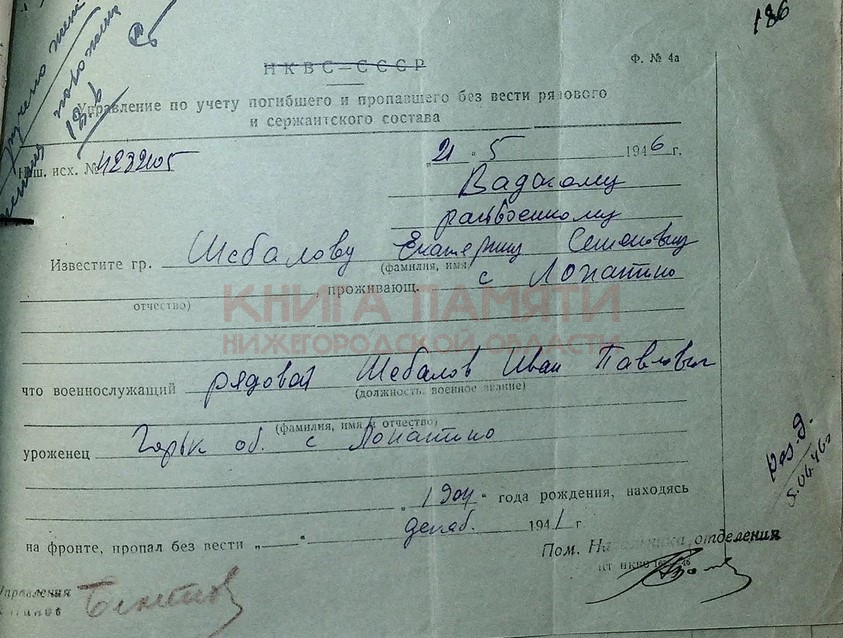 186
вручено
НКВС—СССР
Ф. № 4а
Управление по учету погибшего и пропавшего без вести рядового
и сержантского состава
Наш. исх. № 423205
„21 „ 5 1946 г.
Вадскому
райвоенкому
Известите гр. Шебалову Екатерину Семеновну
(фамилия, имя,
проживающ. с Лопатино
отчество)
КНИГА ПАМЯТИ
НИЖЕГОРОДСКОЙ ОБЛАСТИ
что военнослужащий рядовой Шебалов Иван Павлович
(должность, военное звание)
(фамилия, имя и отчество)
уроженец Горьк об. с Лопатино
„1904 " года рождения, находясь
на фронте, пропал без вести „ " декаб. 1941 г
Пом. Начальника отделения
Управления